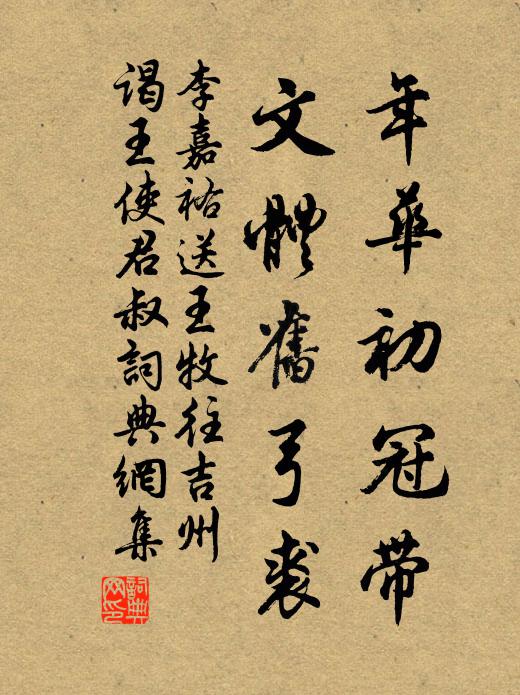 年華初冠帶
文體舊弓裘
李嘉祐送王牧往吉州
謁王使君叔詞典網集
詞典
网印